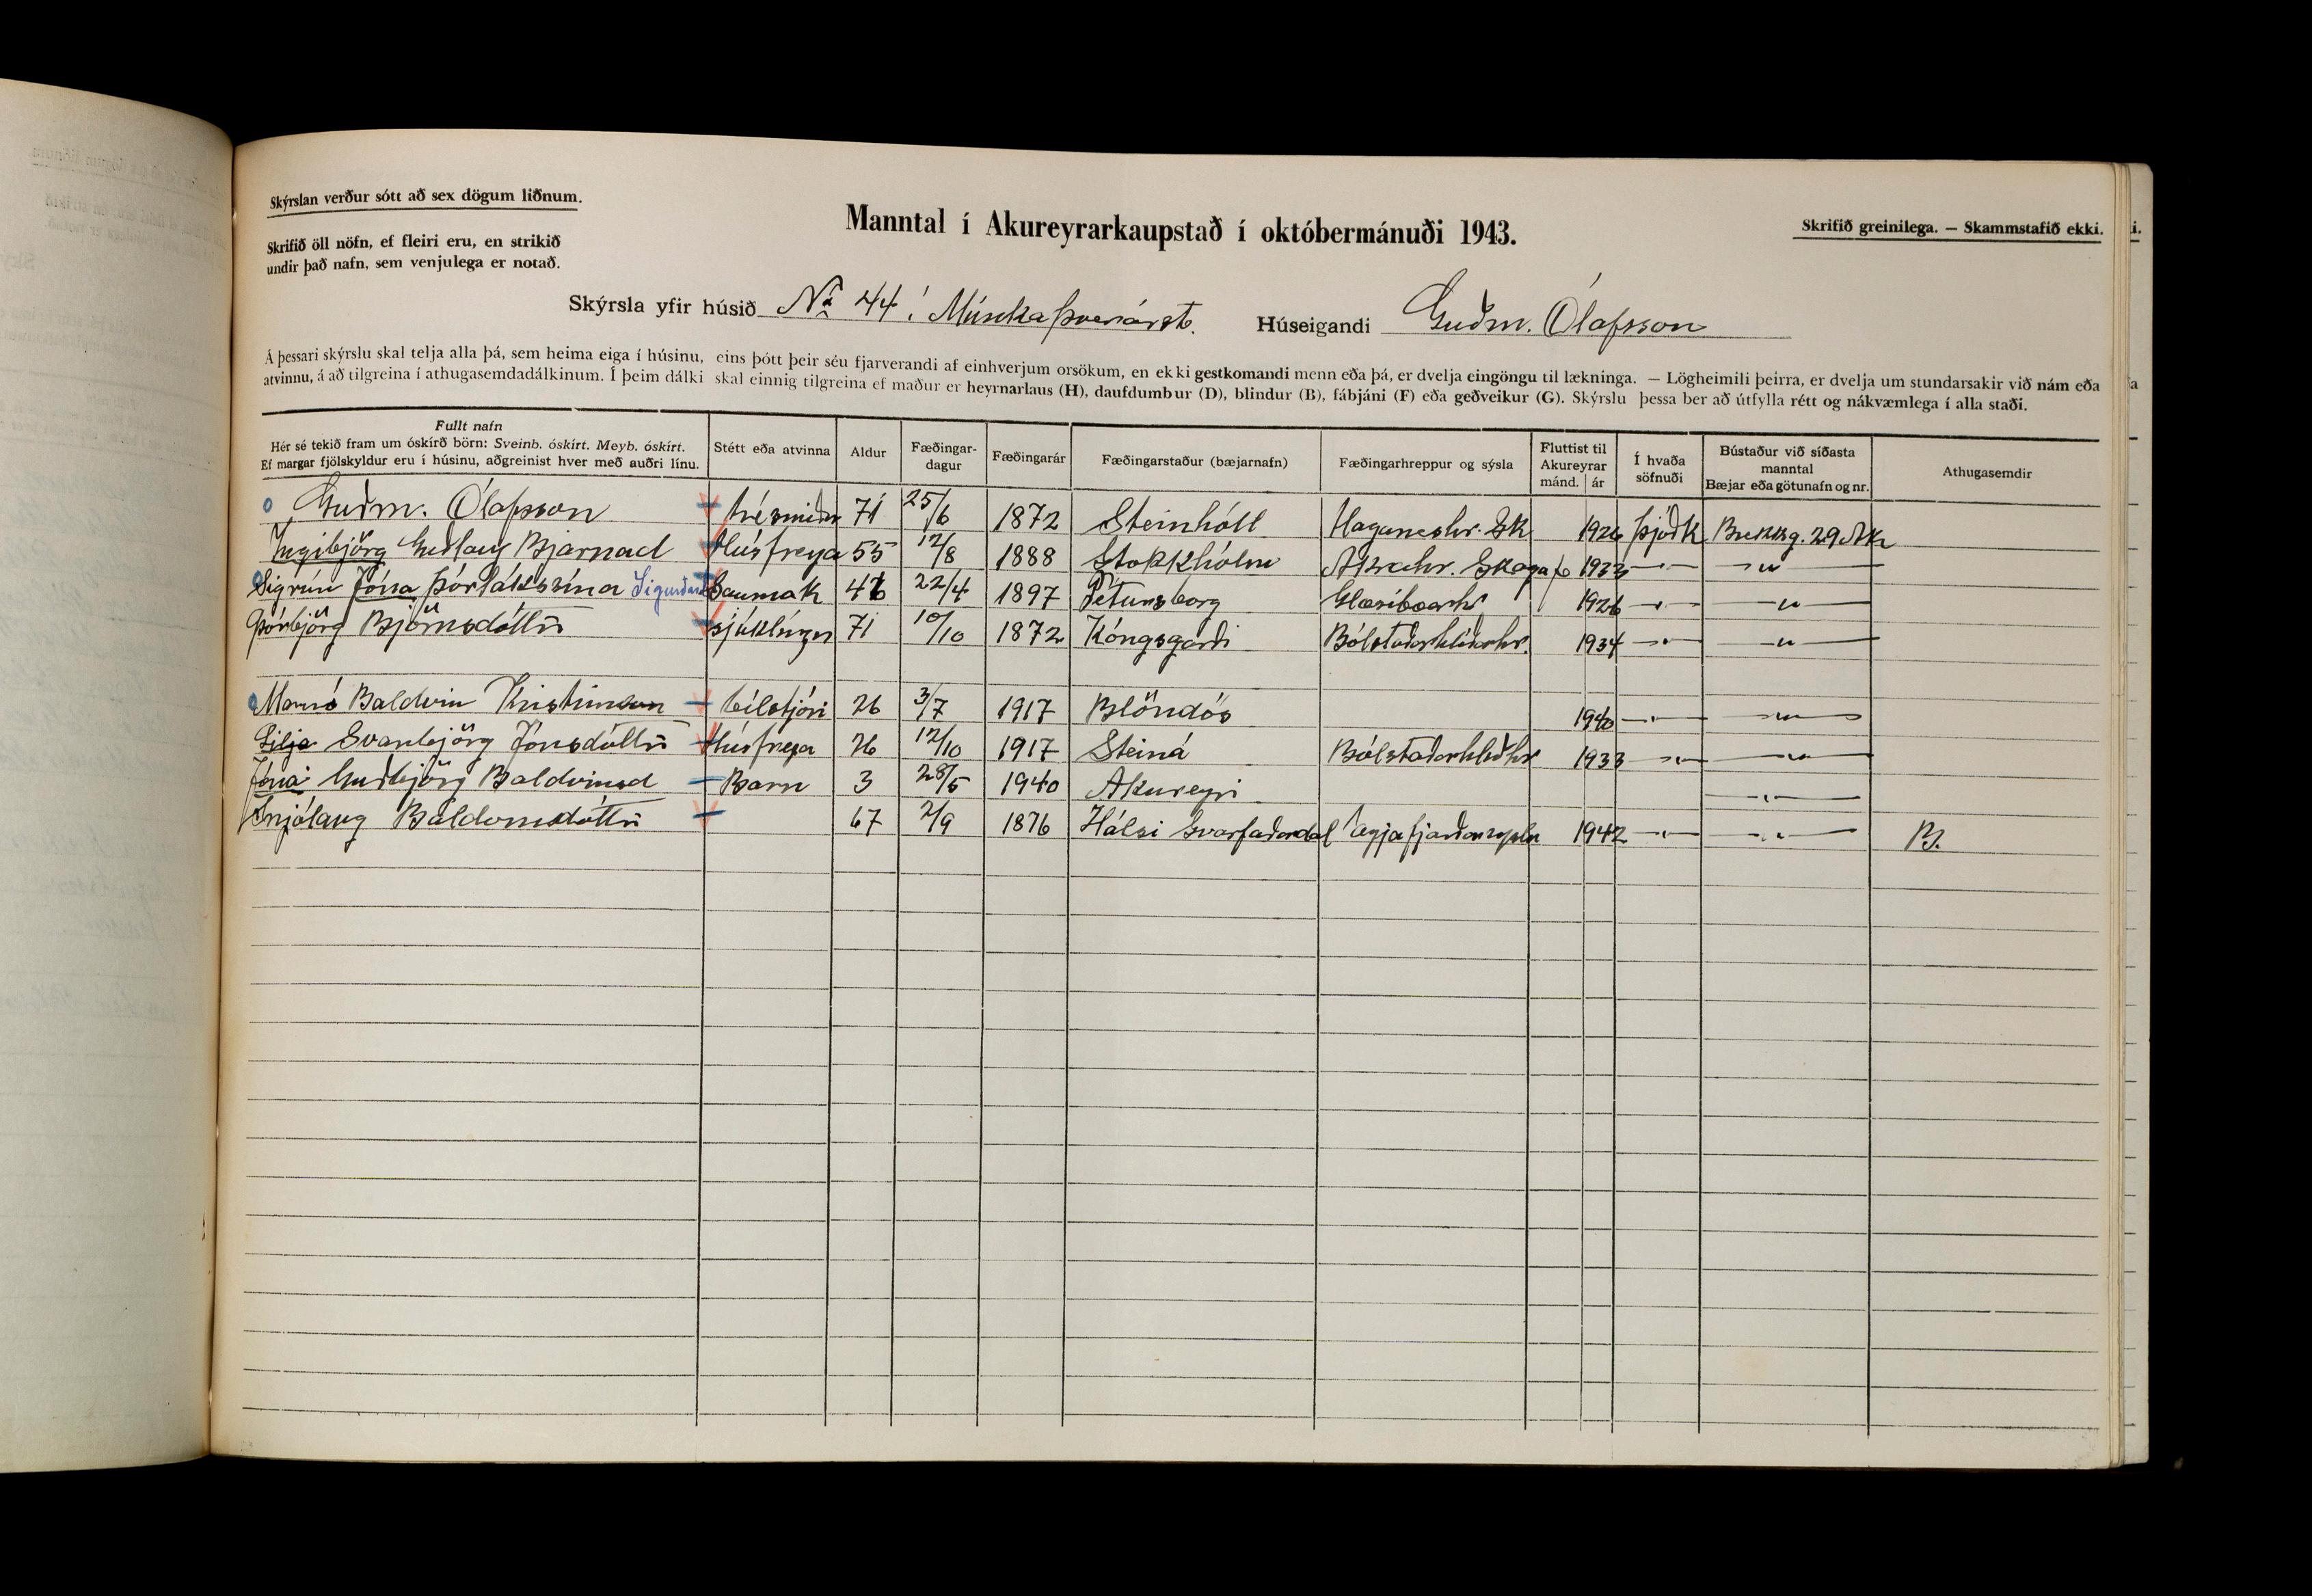 Skýrslan verður sótt að sex dögum liðnum.
Skrifið öll nöfn, ef fleiri eru, en strikið
undir það nafn, sem venjulega er notað.
Manntal í Akureyrarkaupstað í októbermánuði 1943.
Skrifið greinilega. — Skammstafið ekki.
Skýrsla yfir húsið No 44 í Múnkaþverárst. Húseigandi Guðm. Ólafsson
Á þessari skýrslu skal telja alla þá, sem heima eiga í húsinu, eins þótt þeir séu fjarverandi af einhverjum orsökum, en ekki gestkomandi menn eða þá, er dvelja eingöngu til lækninga. — Lögheimili þeirra, er dvelja um stundarsakir við nám eða
atvinnu, á að tilgreina í athugasemdadálkinum. Í þeim dálki skal einnig tilgreina ef maður er heyrnarlaus (H), daufdumbur (D), blindur (B), fábjáni (F) eða geðveikur (G). Skýrslu þessa ber að útfylla rétt og nákvæmlega í alla staði.
Fullt nafn
Hér sé tekið fram um óskírð börn: Sveinb. óskírt. Meyb. óskírt.
Ef margar fjölskyldur eru í húsinu, aðgreinist hver með auðri línu.
Stétt eða atvinna
Aldur
Fæðingar-
dagur
Fæðingarár
Fæðingarstaður (bæjarnafn)
Fæðingarhreppur og sýsla
Fluttist til
Akureyrar
mánd. ár
Í hvaða
söfnuði
Bústaður við síðasta
manntal
Bæjar eða götunafn og nr.
Athugasemdir
Guðm. Ólafsson trésmiður 71 25/6 1872 Steinhóll Haganeshr. Sk 1926 þjóðk Brekkg. 29 Ak
Ingibjörg Guðlaug Bjarnad Húsfreya 55 12/8 1888 Stokkhólm Akrahr. Skagaf. 1933 — " — — " —
Sigrún Jóna Þorláksína Saumak 46 22/4 1897 Pétursborg Glæsibæarhr 1926 — " — — " —
Þórbjörg Björnsdóttir sjúklíngur 71 10/10 1872 Kóngsgarði Bólstaðarhlíðarhr. 1934 — " — — " —
Baldvin Kristinsson bílstjóri 26 3/7 1917 Blöndós 1940 — " — — " —
Lilja Svanbjörg Jónsdóttir Húsfreya 26 12/10 1917 Steiná Bólstaðarhlíðhr 1933 — " — — " —
Jóna Guðbjörg Baldvinsd Barn 3 28/5 1940 Akureyri — " —
Snjólaug Baldvinsdóttir 67 2/9 1876 Hálsi Svarfaðardal Eyjafjarðarsýslu 1942 — " — — " — B.